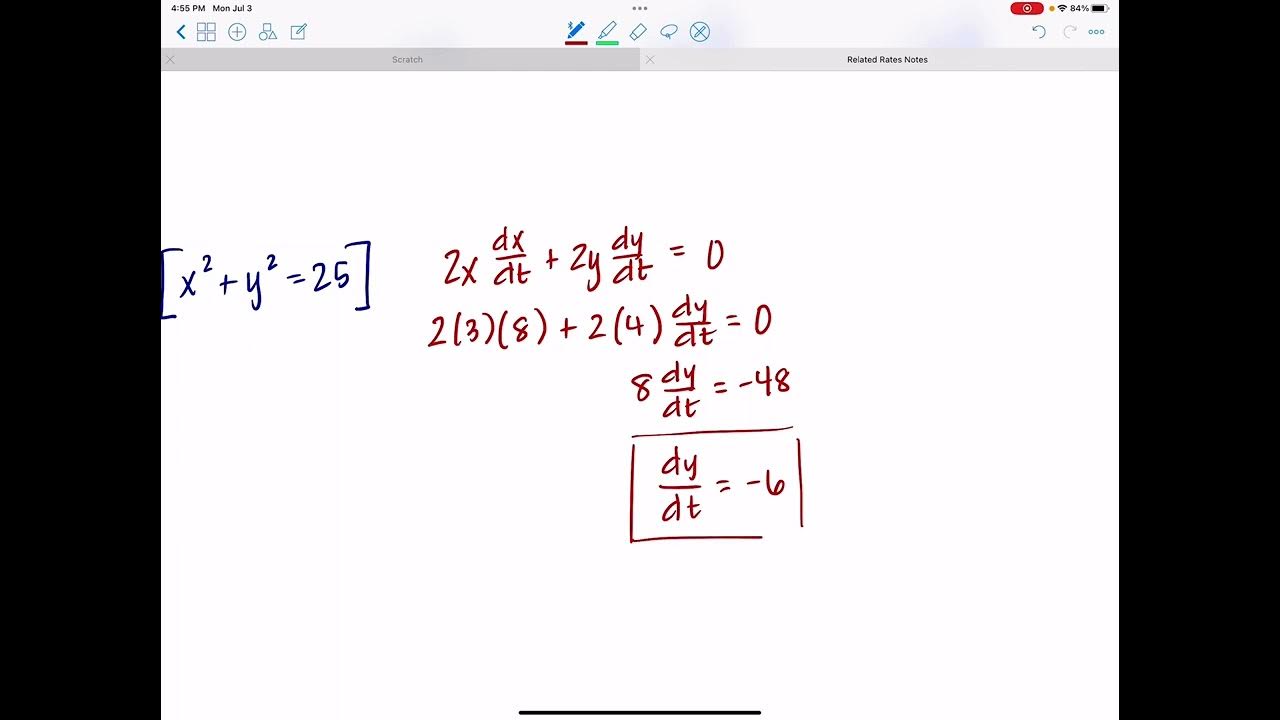 4:55 PM Mon Jul 3
84%
Scratch
Related Rates Notes
[x² + y² = 25]
2x dx/dt + 2y dy/dt = 0
2(3)(8) + 2(4) dy/dt = 0
8 dy/dt = -48
dy/dt = -6